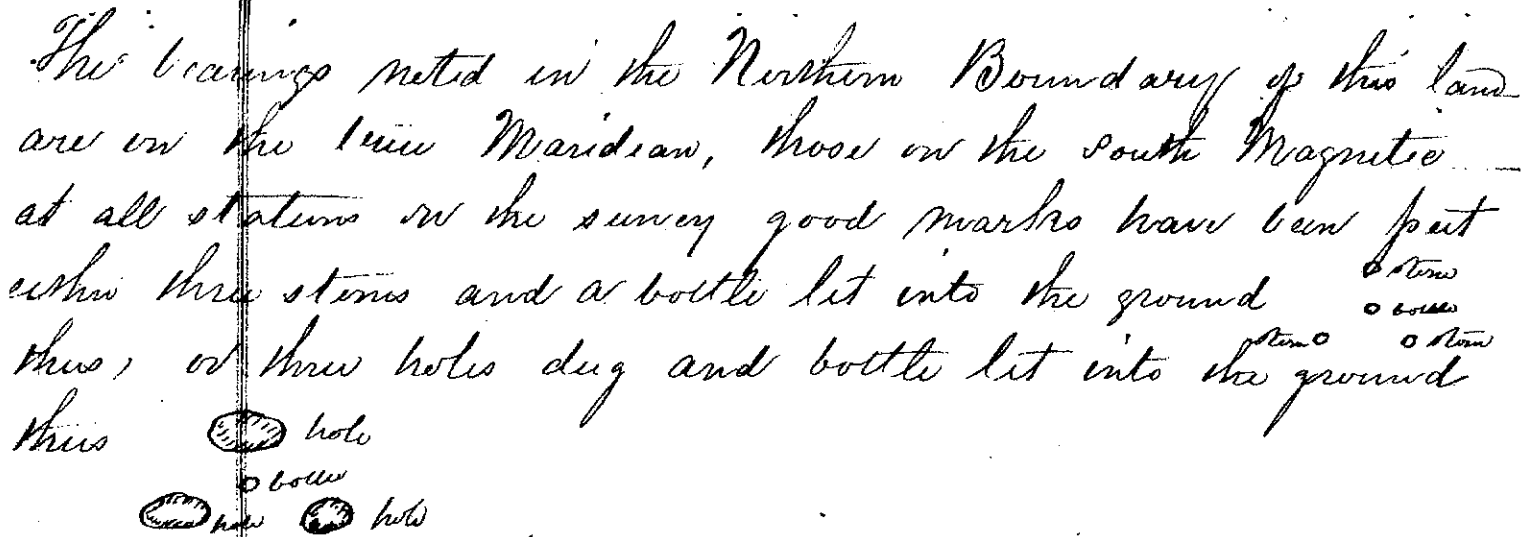 The bearings noted in the Northern Boundary of this land
are on the true Maridean, those on the south Magnetic
at all stations on the survey good marks have been put
either three stones and a bottle let into the ground
stone
bottle
stone stone
thus, or three holes dug and bottle let into the ground
thus hole
bottle
hole hole